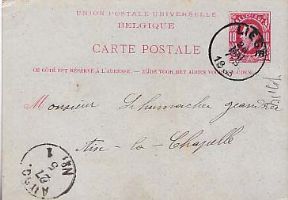 UNION POSTALE UNIVERSELLE
BELGIQUE
CARTE POSTALE
CE CÔTÉ EST RÉSERVÉ À L'ADRESSE. — ZIJDE VOOR HET ADRES VOORBEHOUDEN.
LIÉGE
18
Monsieur Schumacher
Aix-la-Chapelle
AUSG.
27
9
No 1